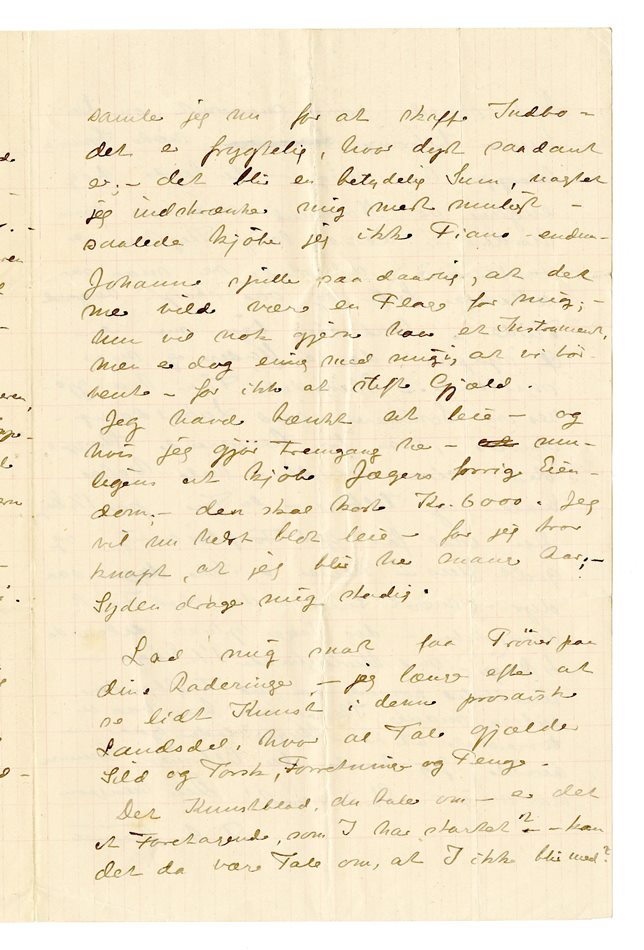 samle jeg nu for at skaffe Indbo –
det er frygtelig, hvor dyrt saadant
er; – det blir en betydelig Sum, uagtet
jeg indskrænker mig mest muligt –
saaledes kjøber jeg ikke Piano – endnu –
Johanne spiller saa daarlig, at det
me vild være en Plage for mig; –
hun vil nok gjerne have et Instrument,
men er dog enig med mig i, at vi bør
vente – for ikke at stifte Gjæld.
Jeg havde tænkt at leie – og
hvis jeg gjør Fremgang her – mu–
ligens at kjøbe Jægers forrige Eien–
dom; – den skal koste Kr. 6000. Jeg
vil nu helst blot leie – for jeg tror
knapt, at jeg blir her mange Aar; –
Syden drager mig stadig.
Lad mig snart faa Prøver paa
dine Raderinger – jeg længes efter at
se lidt Kunst i denne prosaiske
Landsdel, hvor al Tale gjælder
Sild og Torsk, Forretninger og Penge –
Det Kunstblad, du taler om – er det
et Foretagende, som I har startet? – kan
det da være Tale om, at I ikke blir med?